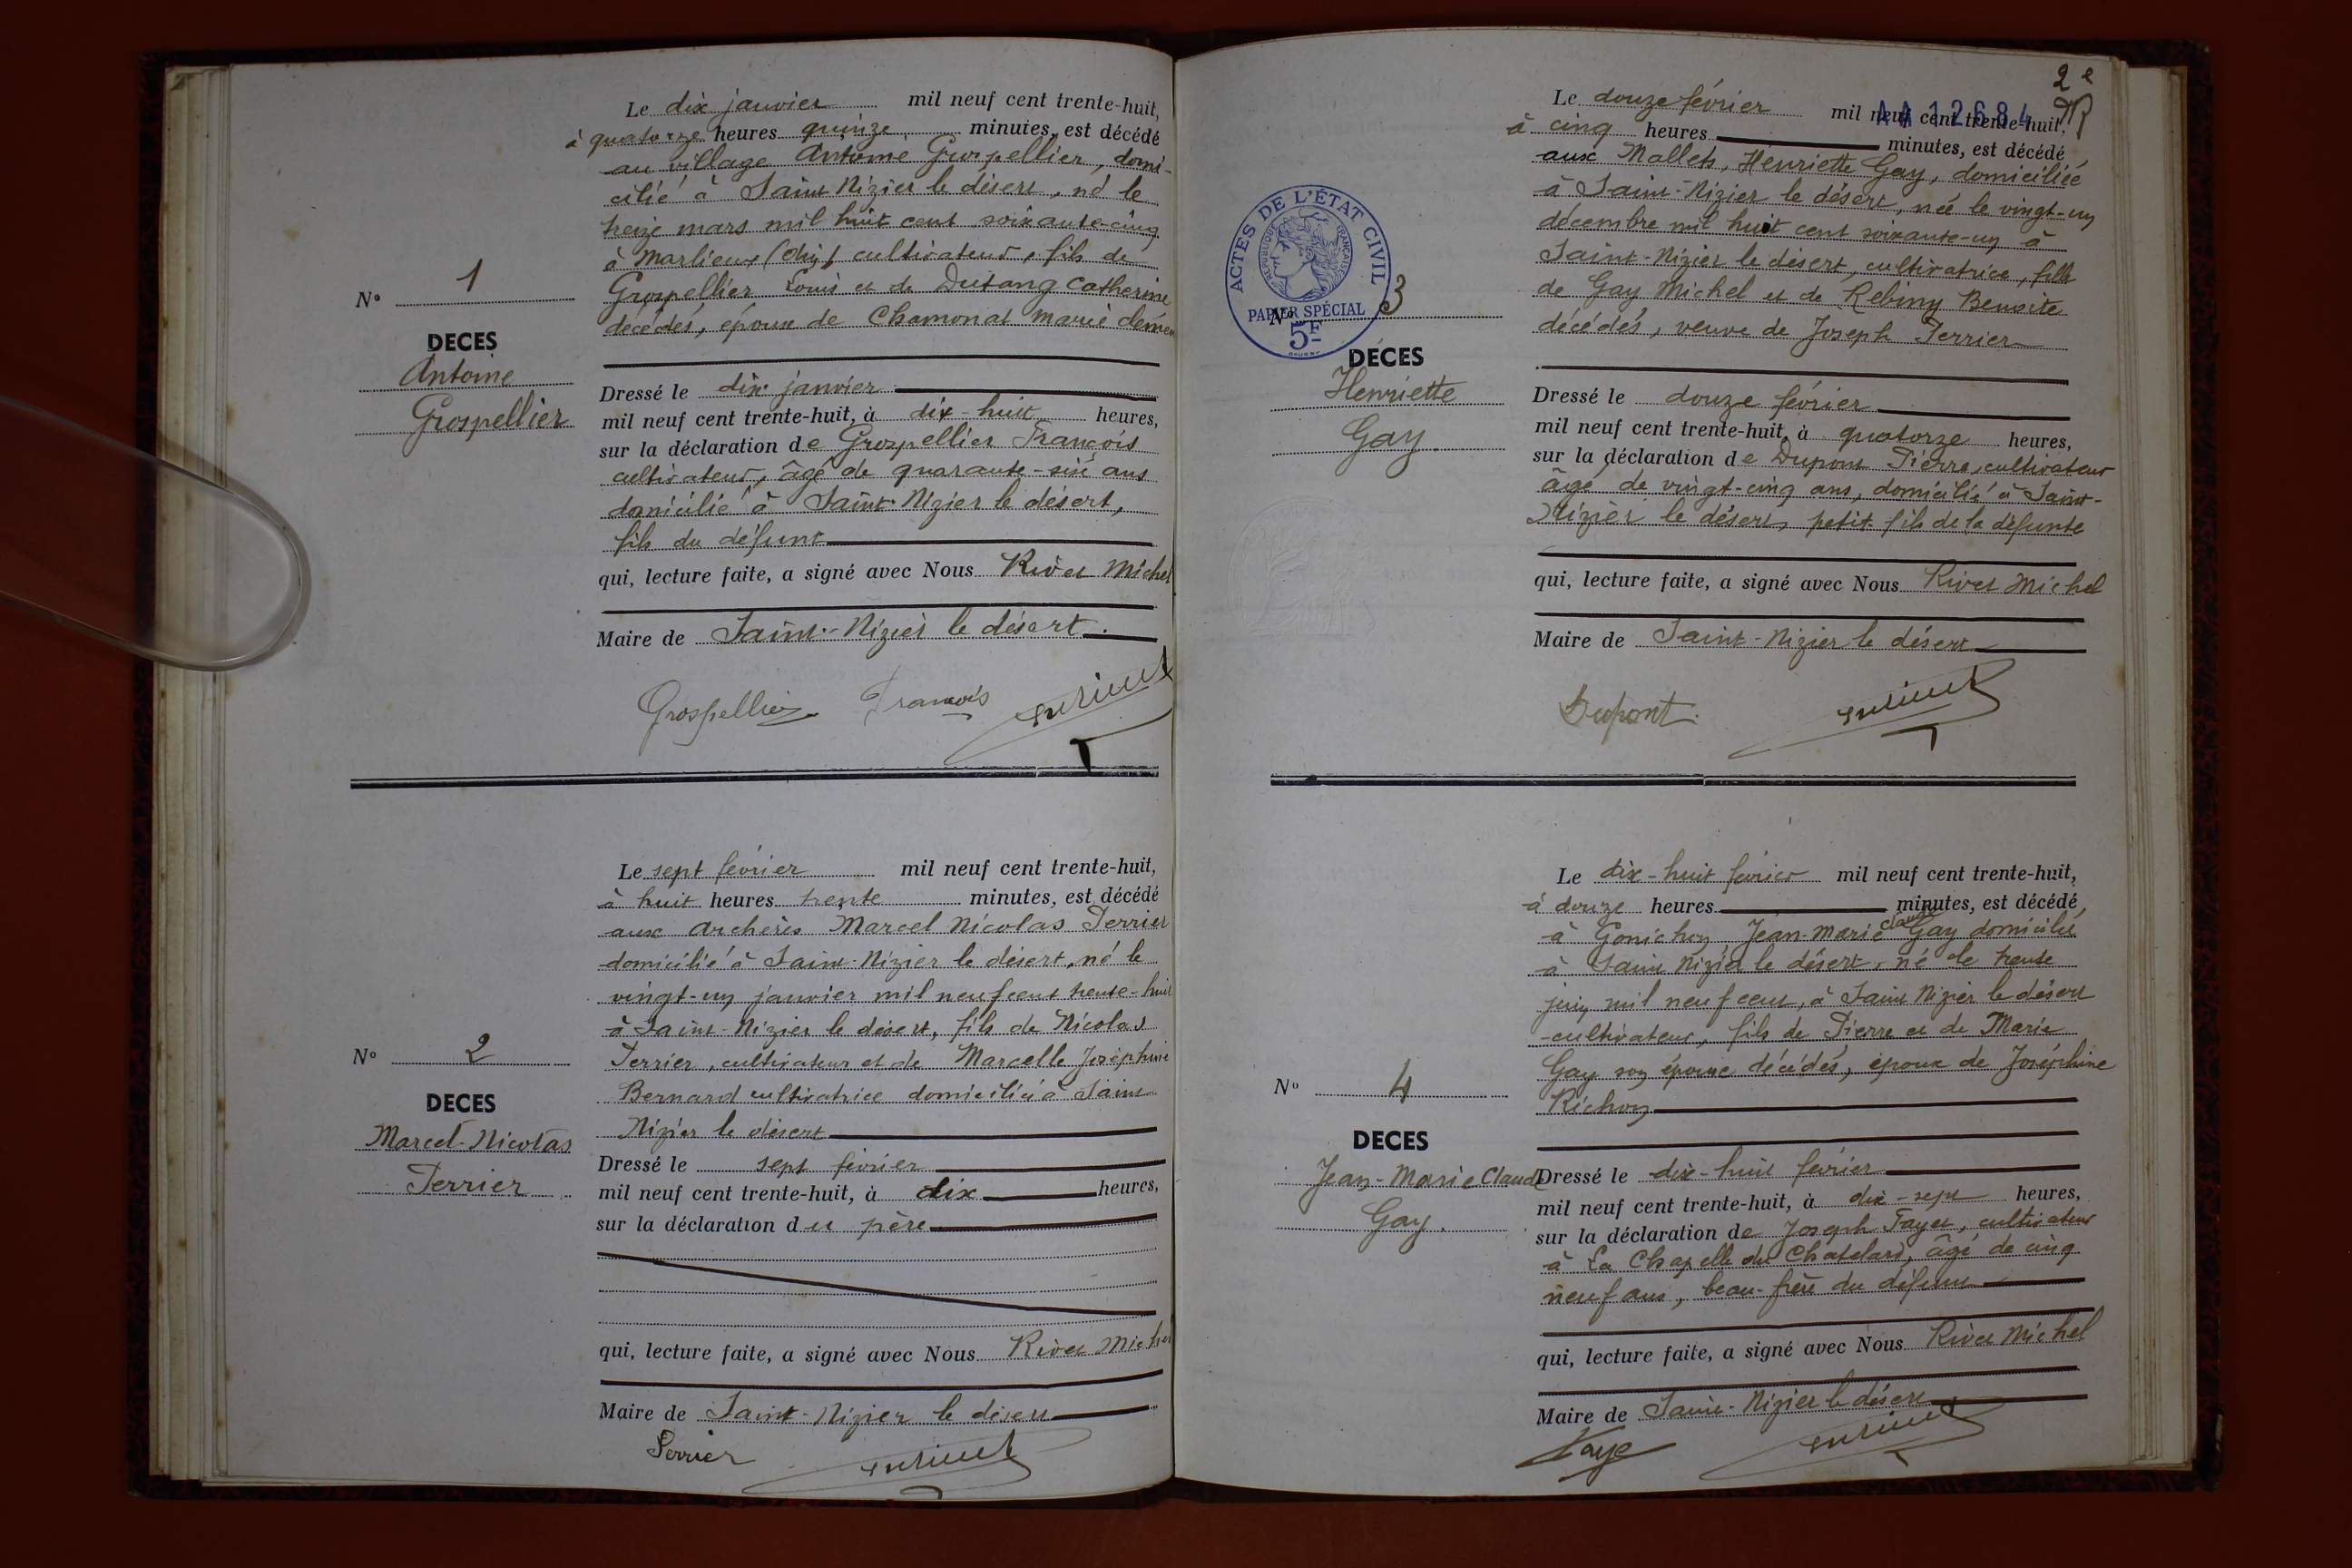 Le dix janvier mil neuf cent trente-huit,
à quatorze heures quinze minutes, est décédé
au village Antoine Grospellier, domi-
cilié à Saint Nizier le désert, né le
treize mars mil huit cent soixante-cinq
à Marlieux (Ain) cultivateur, fils de
Grospellier Louis et de Dutang Catherine
décédés, époux de Chamonat Marie
N° 1
DECES
Antoine
Grospellier
Dressé le dix janvier
mil neuf cent trente-huit, à dix-huit heures,
sur la déclaration de Grospellier François
cultivateur, âgé de quarante-six ans
domicilié à Saint-Nizier le désert,
fils du défunt
qui, lecture faite, a signé avec Nous Rivet Michel
Maire de Saint-Nizier le désert.
Grospellier François
Le sept février mil neuf cent trente-huit,
à huit heures trente minutes, est décédé
aux Archères Marcel Nicolas Perrier
domicilié à Saint-Nizier le désert, né le
vingt-un janvier mil neuf cent trente-huit
à Saint-Nizier le désert, fils de Nicolas
Perrier, cultivateur et de Marcelle Joséphine
Bernard cultivatrice domiciliés à Saint
Nizier le désert
N° 2
DECES
Marcel-Nicolas
Perrier
Dressé le sept février
mil neuf cent trente-huit, à dix heures,
sur la déclaration du père
qui, lecture faite, a signé avec Nous Rivet Michel
Maire de Saint-Nizier le désert
Perrier
2e
AA 12684
Le douze février mil neuf cent trente-huit,
à cinq heures minutes, est décédé
aux Mallets, Henriette Gay, domiciliée
à Saint-Nizier le désert, née le vingt-un
décembre mil huit cent soixante-un à
Saint-Nizier le désert, cultivatrice, fille
de Gay Michel et de Rebiny Benoite
décédés, veuve de Joseph Perrier
ACTES DE L'ÉTAT CIVIL
RÉPUBLIQUE FRANÇAISE
PAPIER SPÉCIAL
5F
N° 3
DÉCES
Henriette
Gay
Dressé le douze février
mil neuf cent trente-huit, à quatorze heures,
sur la déclaration de Dupont Pierre, cultivateur
âgé de vingt-cinq ans, domicilié à Saint-
Nizier le désert, petit-fils de la défunte
qui, lecture faite, a signé avec Nous Rivet Michel
Maire de Saint-Nizier le désert
Dupont
Le dix-huit février mil neuf cent trente-huit,
à douze heures minutes, est décédé
à Gonichon Jean-Marie Claude Gay domicilié
à Saint Nizier le désert, né le trente
juin mil neuf cent, à Saint Nizier le désert
cultivateur, fils de Pierre et de Marie
Gay son épouse décédés, époux de Joséphine
Richon
N° 4
DECES
Jean-Marie Claude
Gay.
Dressé le dix-huit février
mil neuf cent trente-huit, à dix-sept heures,
sur la déclaration de Joseph Fayet, cultivateur
à La Chapelle du Chatelard, âgé de cinq
neuf ans, beau-frère du défunt
qui, lecture faite, a signé avec Nous Rivet Michel
Maire de Saint-Nizier le désert